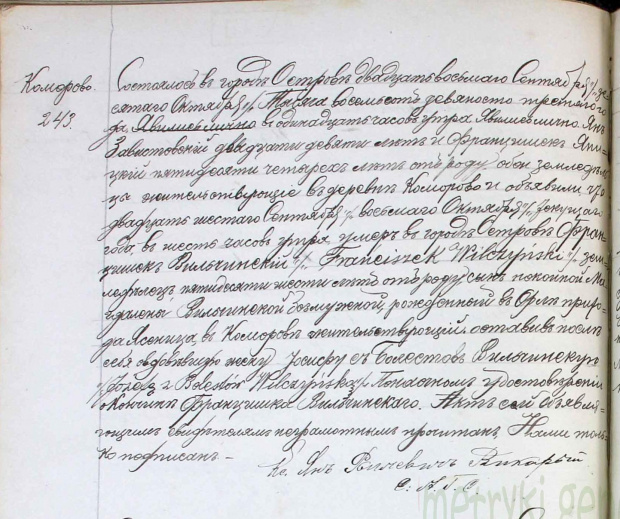 Коморово.
243.
Состоялось въ городѣ Островѣ двадцать восьмаго Сентября /: де-
сятаго Октября :/ Тысяча восемьсотъ девяносто третьяго го-
да. Явились лично въ одинадцать часовъ утра Янъ
Завистовскій двадцати девяти лѣтъ и Францишекъ
цкій пятидесяти четырехъ лѣтъ отъ роду оба земледѣль-
цы жительствующіе въ деревни Коморово и объявили что
двадцать шестаго Сентября /: восьмаго Октября :/ текущаго
года, въ шесть часовъ утра умеръ въ городѣ Островѣ Фран-
цишекъ Вильчинскій /: Franciszek Wilczyński :/ зем-
ледѣлецъ, пятидесяти шести лѣтъ отъ роду сынъ покойной Ма-
гдалены Вильчинской безмужной, рожденный въ прихо-
да Ясеница, въ Коморовѣ жительствующій. оставивъ послѣ
себя овдовѣвшую жену Юзефу съ Болестовъ Вильчинскую
/: z Bolestów Wilczyńską :/ По удостовѣреніи
о кончинѣ Францишка Вильчинскаго. Актъ сей объявля-
ющимъ свидѣтелямъ неграмотнымъ прочитанъ, Нами толь-
ко подписанъ.
Кс. Янъ Викарый
С. А. Г. С.
metryki.gen